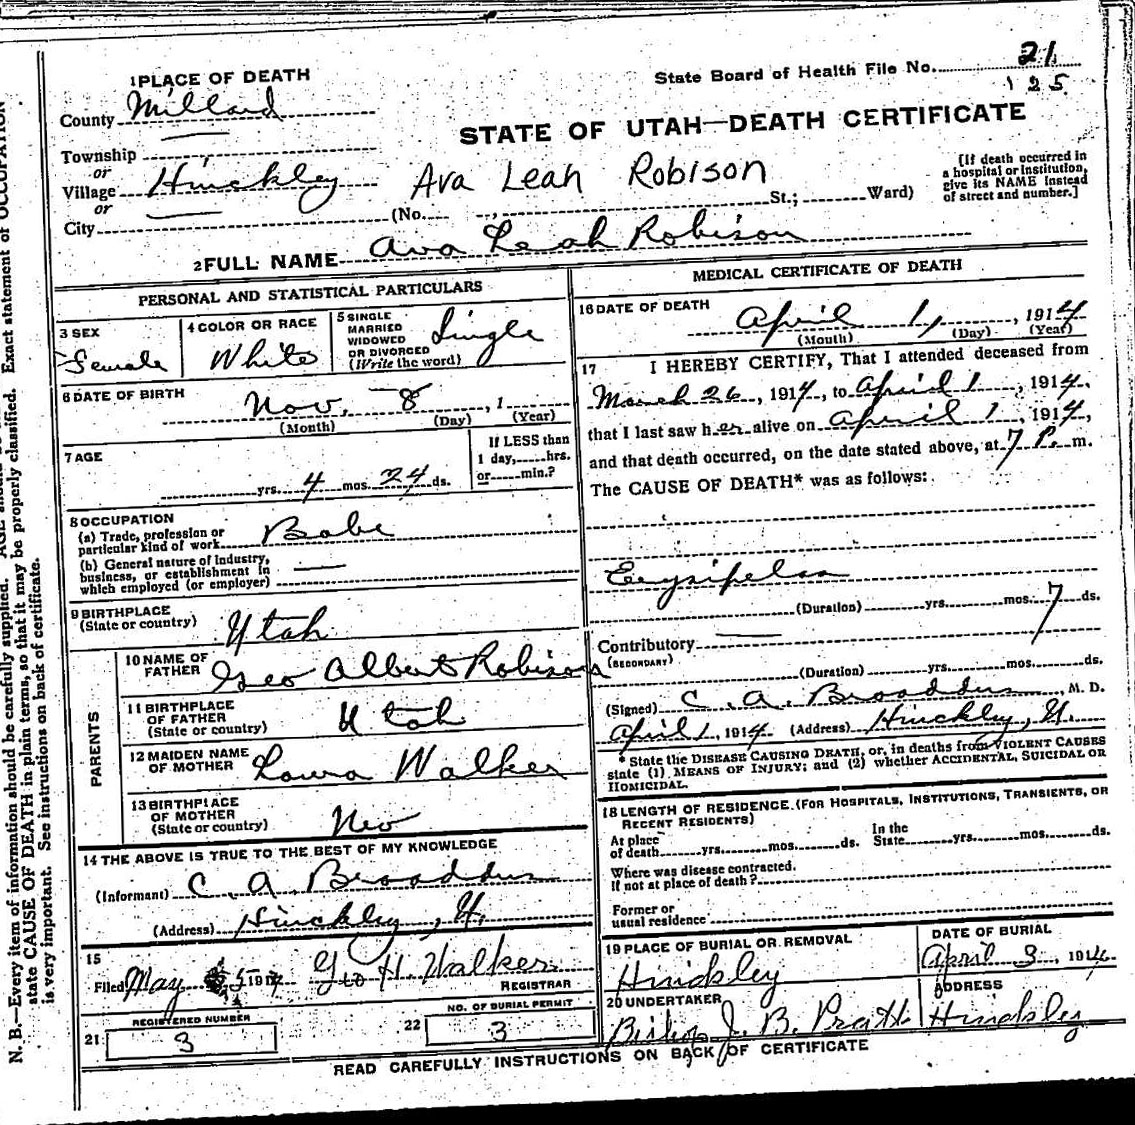 1 PLACE OF DEATH
State Board of Health File No. 21
125
County Millard
STATE OF UTAH—DEATH CERTIFICATE
Township
or
Village Hinckley
Ava Leah Robison
or
City
(No. St.; Ward)
[If death occurred in
a hospital or institution,
give its NAME instead
of street and number.]
2 FULL NAME Ava Leah Robison
PERSONAL AND STATISTICAL PARTICULARS
3 SEX
Female
4 COLOR OR RACE
White
5 SINGLE
MARRIED
WIDOWED
OR DIVORCED
(Write the word)
Single
6 DATE OF BIRTH
Nov. 8, 1
(Month) (Day) (Year)
7 AGE
yrs. 4 mos. 24 ds.
If LESS than
1 day, hrs.
or min.?
8 OCCUPATION
(a) Trade, profession or
particular kind of work Babe
(b) General nature of Industry,
business, or establishment in
which employed (or employer)
9 BIRTHPLACE
(State or country) Utah
PARENTS
10 NAME OF
FATHER Geo Albert Robison
11 BIRTHPLACE
OF FATHER
(State or country) Utah
12 MAIDEN NAME
OF MOTHER Laura Walker
13 BIRTHPLACE
OF MOTHER
(State or country) Nev
14 THE ABOVE IS TRUE TO THE BEST OF MY KNOWLEDGE
(Informant) C. A. Broaddus
(Address) Hinckley, U.
15
Filed May 5 1914 Geo H. Walker
REGISTRAR
REGISTERED NUMBER
21 3
NO. OF BURIAL PERMIT
22 3
MEDICAL CERTIFICATE OF DEATH
16 DATE OF DEATH
April 1, 1914
(Month) (Day) (Year)
17 I HEREBY CERTIFY, That I attended deceased from
March 26, 1914, to April 1, 1914,
that I last saw her alive on April 1, 1914,
and that death occurred, on the date stated above, at 7 P. m.
The CAUSE OF DEATH* was as follows:
Erysipelas
(Duration) yrs. mos. 7 ds.
Contributory
(SECONDARY)
(Duration) yrs. mos. ds.
(Signed) C. A. Broaddus, M. D.
April 1, 1914 (Address) Hinckley, U.
* State the DISEASE CAUSING DEATH, or, in deaths from VIOLENT CAUSES
state (1) MEANS OF INJURY; and (2) whether ACCIDENTAL, SUICIDAL OR
HOMICIDAL.
18 LENGTH OF RESIDENCE (FOR HOSPITALS, INSTITUTIONS, TRANSIENTS, OR
RECENT RESIDENTS)
At place
of death yrs. mos. ds.
In the
State yrs. mos. ds.
Where was disease contracted,
if not at place of death?
Former or
usual residence
19 PLACE OF BURIAL OR REMOVAL
Hinckley
DATE OF BURIAL
April 3, 1914
20 UNDERTAKER
Bishop J. B. Pratt
ADDRESS
Hinckley
READ CAREFULLY INSTRUCTIONS ON BACK OF CERTIFICATE
N. B.—Every item of information should be carefully supplied.
Exact statement of OCCUPATION
state CAUSE OF DEATH in plain terms, so that it may be properly classified.
is very important. See instructions on back of certificate.